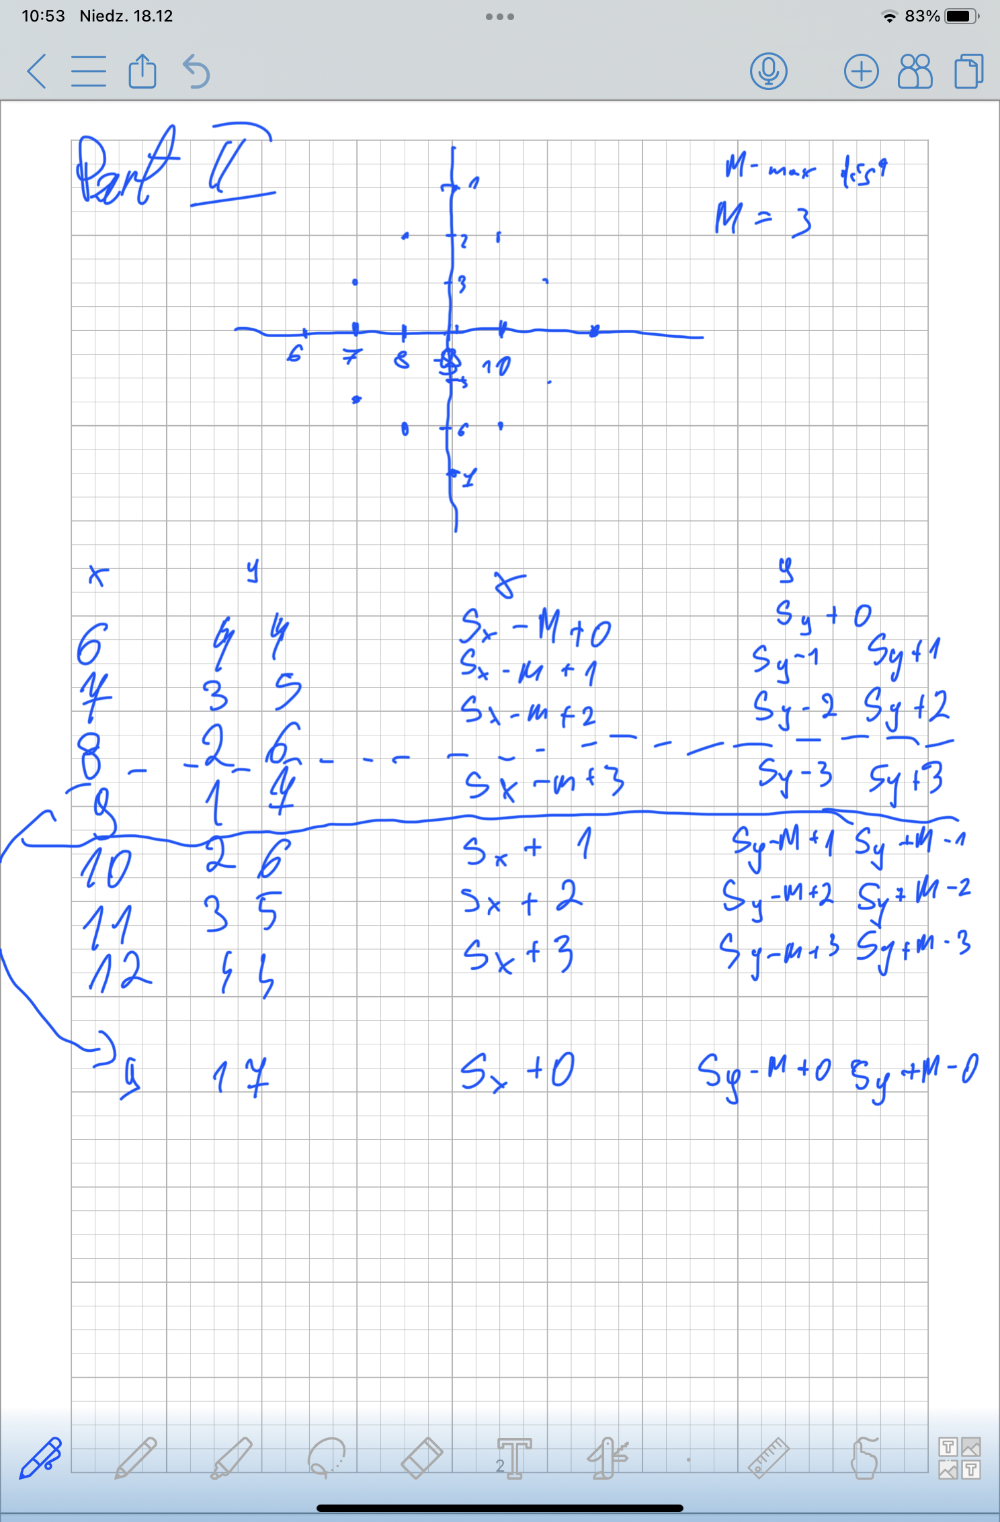 10:53 Niedz. 18.12 83%
Part II
M - max dist
M = 3
1
2
3
6 7 8 9 10
5
6
7
x y x y
6 4 4 Sx - M + 0 Sy + 0
7 3 5 Sx - M + 1 Sy - 1 Sy + 1
8 2 6 Sx - M + 2 Sy - 2 Sy + 2
9 1 7 Sx - M + 3 Sy - 3 Sy + 3
10 2 6 Sx + 1 Sy - M + 1 Sy + M - 1
11 3 5 Sx + 2 Sy - M + 2 Sy + M - 2
12 4 4 Sx + 3 Sy - M + 3 Sy + M - 3
9 1 7 Sx + 0 Sy - M + 0 Sy + M - 0
2
T
T
T